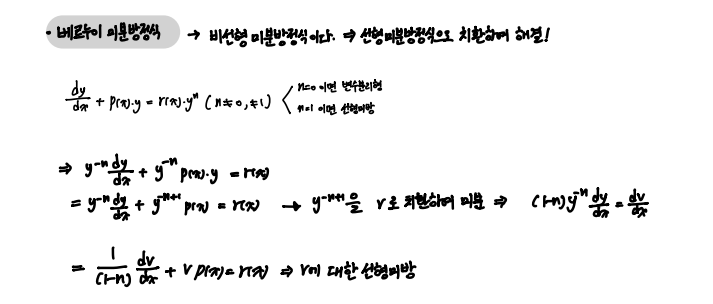 • 베르누이 미분방정식 → 비선형 미분방정식이다. ⇒ 선형미분방정식으로 치환하여 해결!
dy/dx + p(x)·y = r(x)·yⁿ (n≠0, ≠1) < n=0 이면 변수분리형
n=1 이면 선형미방
⇒ y⁻ⁿ dy/dx + y⁻ⁿ p(x)·y = r(x)
= y⁻ⁿ dy/dx + y⁻ⁿ⁺¹ p(x) = r(x) → y⁻ⁿ⁺¹을 v로 치환하여 미분 ⇒ (1-n)y⁻ⁿ dy/dx = dv/dx
= 1/(1-n) dv/dx + v p(x) = r(x) ⇒ v에 대한 선형미방